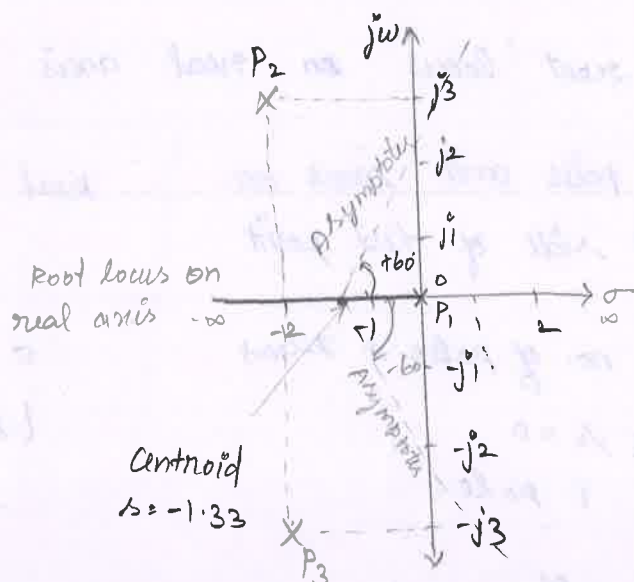 jω
P2
j3
j2
Asymptotes
j1
+60°
Root locus on
real axis
-∞
-12
-1
0
P1
1
2
σ
∞
-60
-j1
Asymptotes
-j2
Centroid
s=-1.33
-j3
P3